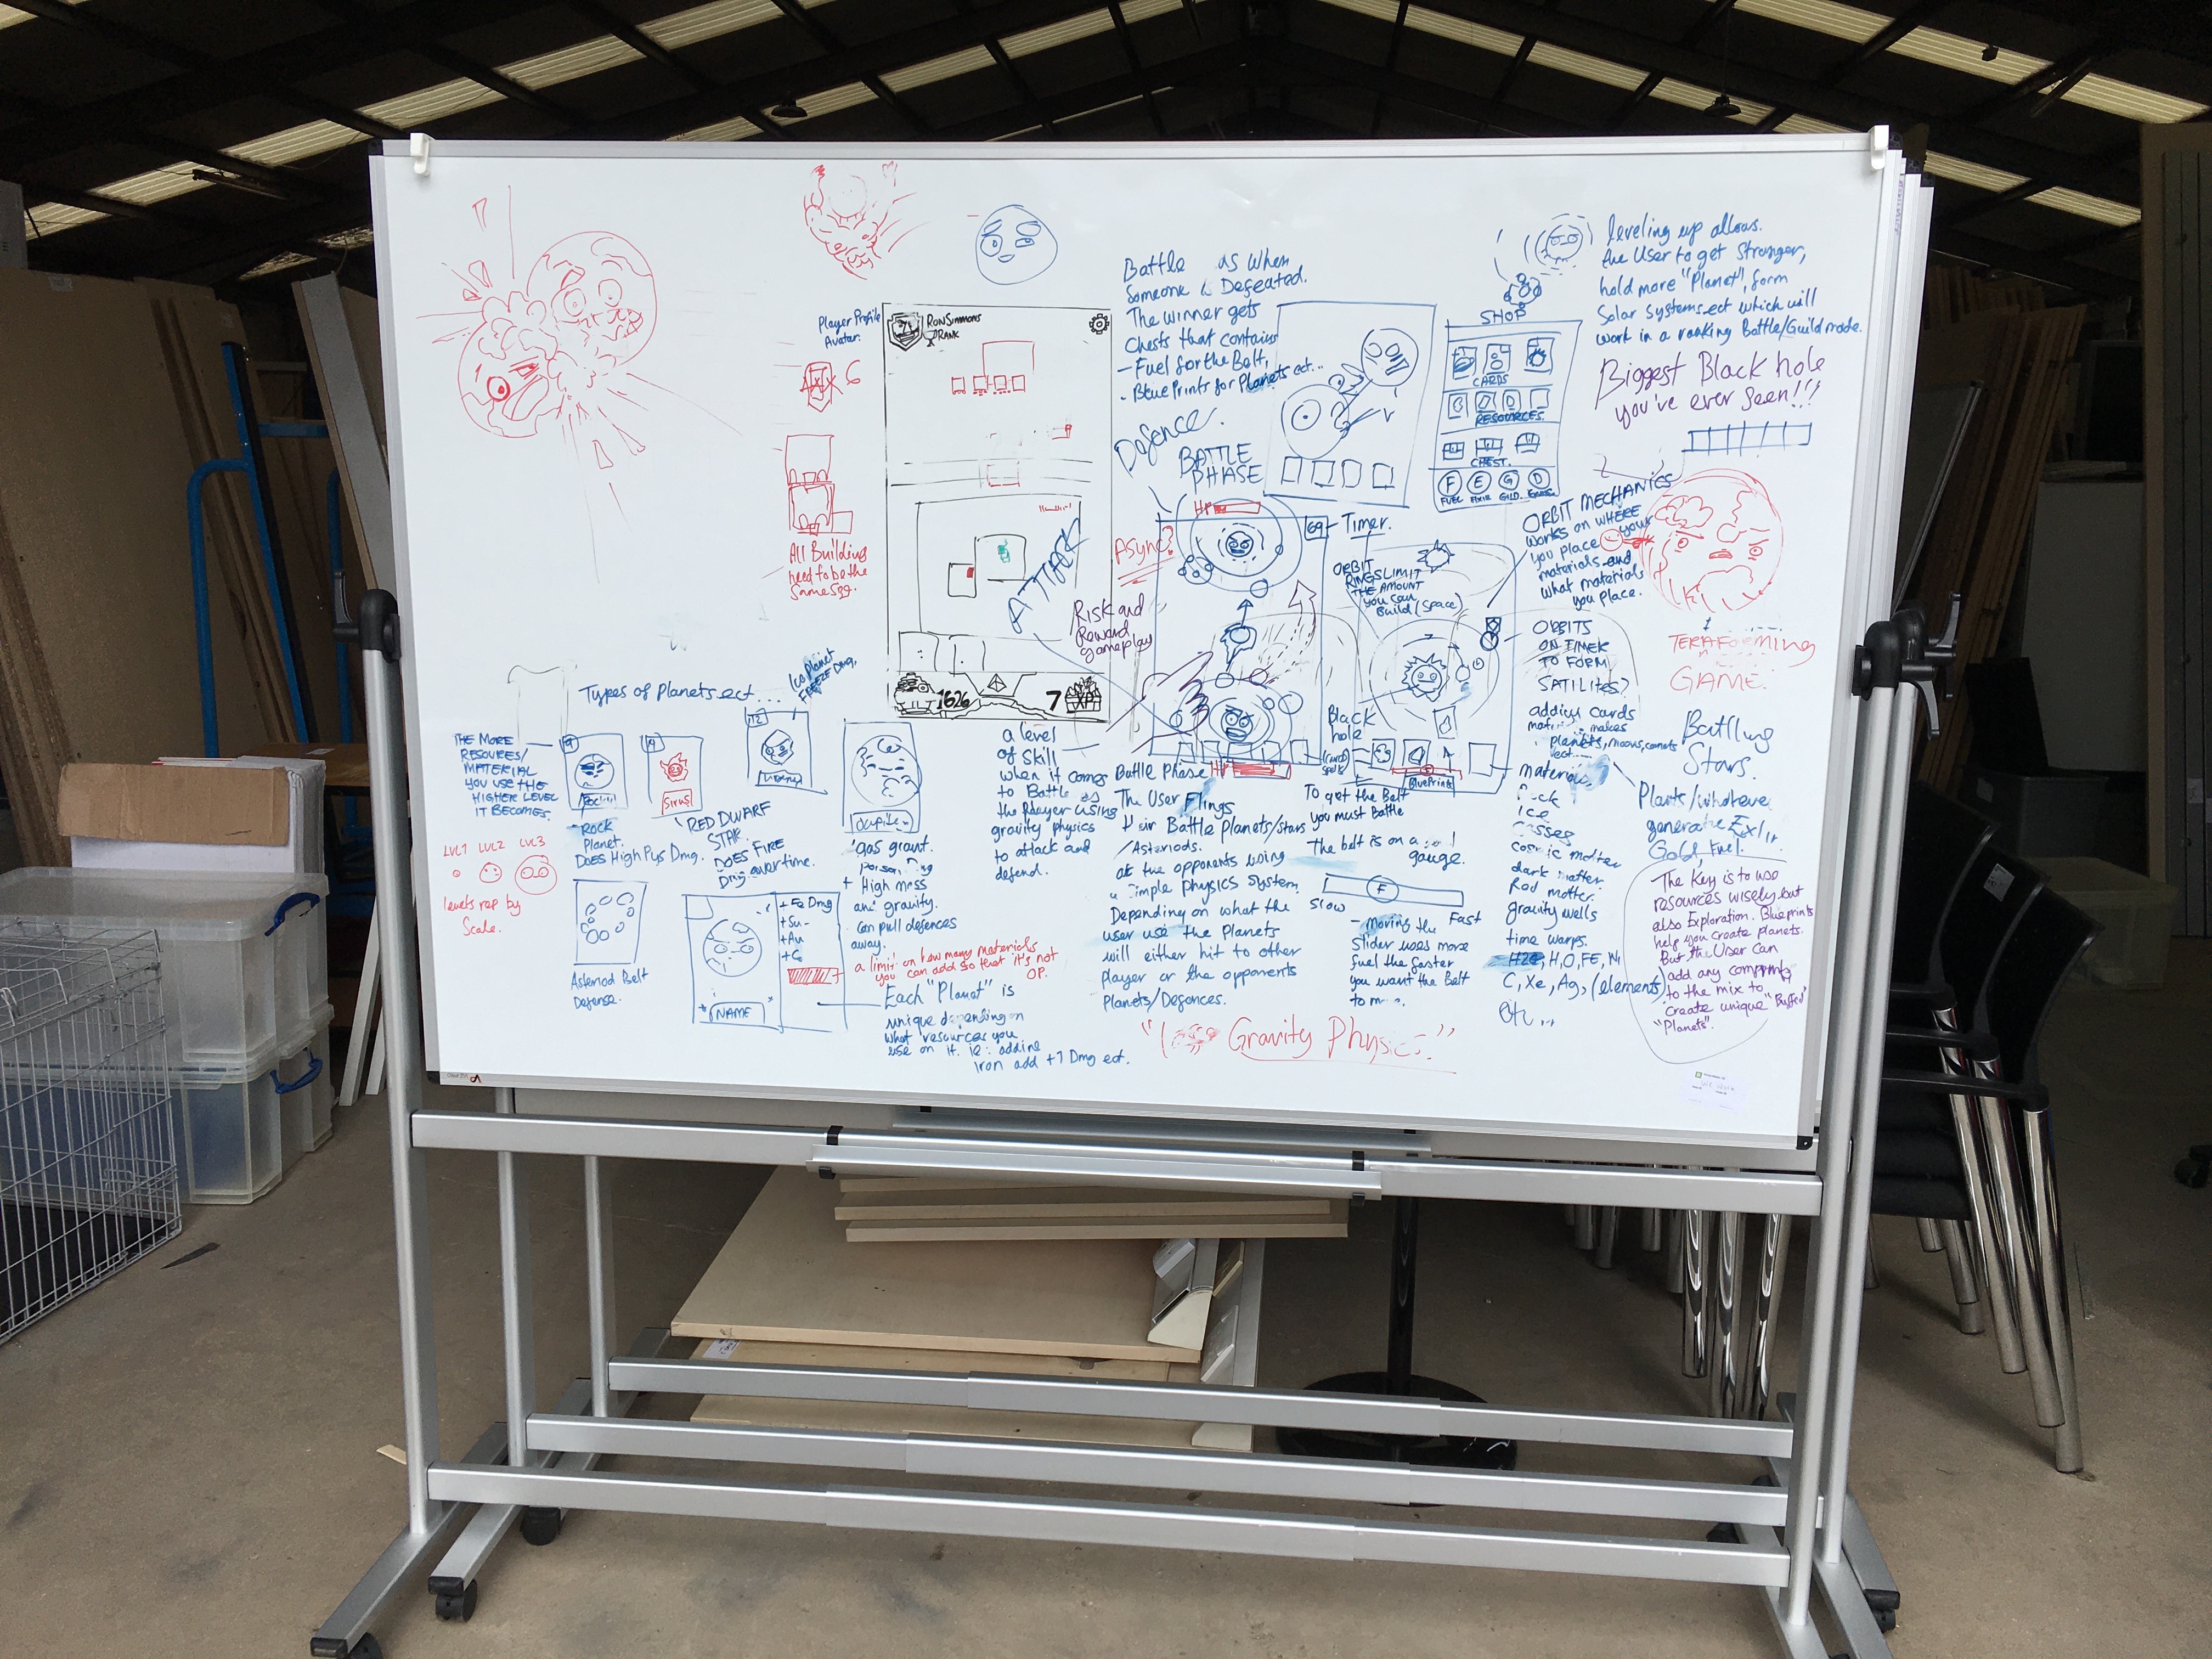 Player Profile
Avatar.
RonSimmons
RANK
6
All Building
need to be the
same sqr.
1626
7
XP
Battle is when
Someone is Defeated.
The winner gets
Chests that contains
- Fuel for the Belt,
- BluePrints for Planets ect...
Defence.
BATTLE
PHASE
ATTACK
Async?
Risk and
Reward
gameplay
HP
69
Timer.
SHOP
CARDS
RESOURCES.
CHEST.
F E G D
FUEL
leveling up allows.
the User to get Stronger,
hold more "Planet", form
Solar Systems ect which will
work in a ranking Battle/Guild mode.
Biggest Black hole
you've ever seen!!!
ORBIT MECHANICS
works on WHERE
you place your
materials and
what materials
you place.
ORBIT
RINGS LIMIT
THE AMOUNT
you can
Build (space)
ORBITS
ON TIMER
TO FORM
SATILITES?
adding Cards
makes
planets, moons, comets
ect
TERAFORMING
GAME.
Battling
Stars.
Types of Planets ect....
Ice Planet
FREEZE Dmg.
THE MORE
RESOURES/
MATERIAL
YOU USE THE
HIGHER LEVEL
IT BECOMES.
LVL1 LVL2 LVL3
levels rep by
Scale.
19
Rock
Planet.
DOES High Pys Dmg.
19
Sirus
RED DWARF
STAR
DOES FIRE
Dmg overtime.
112
gas giant.
+ High mass
and gravity.
can pull defences
away.
a limit on how many materials
you can add so that it's not
OP.
Asteriod Belt
Defense.
+ Fe Dmg
+ Su -
+ Au
NAME
Each "Planet" is
unique depending on
what resources you
use on it. ie: adding
iron add +7 Dmg ect.
a level
of skill
when it comes
to Battle as
the player using
gravity physics
to attack and
defend.
Battle Phase HP
The User Flings
their Battle Planets/stars
/Asteriods.
at the opponents using
a Simple physics system.
Depending on what the
user use the Planets
will either hit to other
player or the opponents
Planets/Defences.
Black
hole
(card)
spells
BluePrint
To get the Belt
you must Battle
The belt is on a
gauge.
F
Slow
Fast
- Moving the
Slider uses more
fuel the faster
you want the Belt
to
materials
Rock
ice
Gasses
cosmic matter
dark matter.
Red matter.
gravity wells
time warps.
H2O, H, O, FE, Ni
C, Xe, Ag, (elements)
etc...
Plants/whatever
generate Exlir
Gold, Fuel
The Key is to use
resources wisely but
also Exploration. Blueprints
help you create planets.
But the User can
add any
to the mix to
create unique "Buffed"
"Planets".
" Gravity Physics."